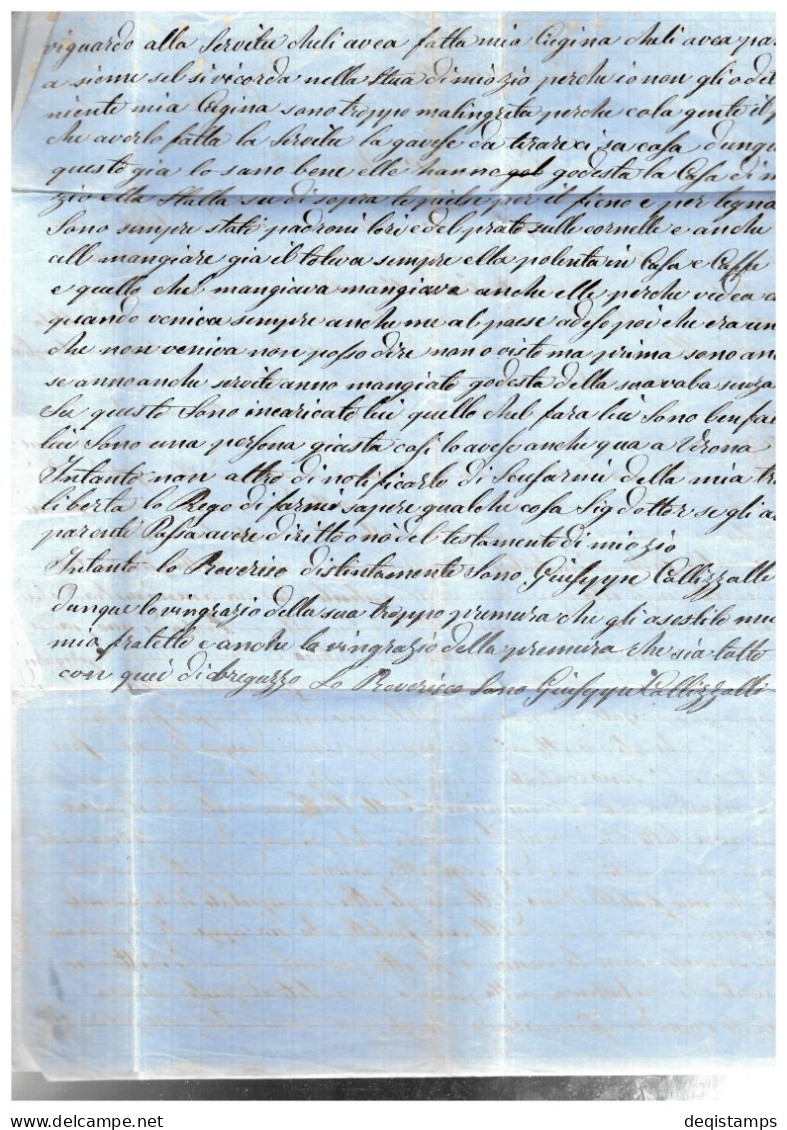 riguardo alla Servitu cheli avea fatta mia Cugina cheli avea pa
a sieme sel si ricorda nella Stua di mio zio perche io non gli o de
niente mia Cugina sono troppo malingreta perche cola gente il
che averlo fatta la Servitu la gavese da tirare ci sa casa dunqu
questo gia lo sano bene elle hanno godesta la Casa di m
zio ella Stalla su di sopra le per il fieno e per legna
Sono sempre stati padroni lori edel prato sulle cornelle e anche
cll mangiare gia il toleva sempre ella polenta in Casa e Caffe
e quello che mangiava mangiava anche elle perche vedea
quando veniva sempre anche me al paese adeso poi che era un
che non veniva non posso dire non o visto ma prima sono an
se anno anche servito anno mangiato godesta della sua senza
Su questo Sono incaricato lui quello chel fara lui Sono ben fa
lui Sono una persona giusta cosi lo avese anche qua a Verona
Intanto non altro di notificarlo di Scusarmi della mia tr
liberta lo Prego di farmi sapere qualche cosa Sig dottor se gli a
parente Possa avere diritto o nò del testamento di mio zio
Intanto lo Reverisco distintamente Sono Giuseppe Collizzolli
dunque lo ringrazio della sua troppo premura che gli asestilo mu
mia fratello e anche la ringrazio della premura che sia tutto
con quei di breguzzo Lo Reverisco Sono Giuseppe Collizzolli
deqistamps